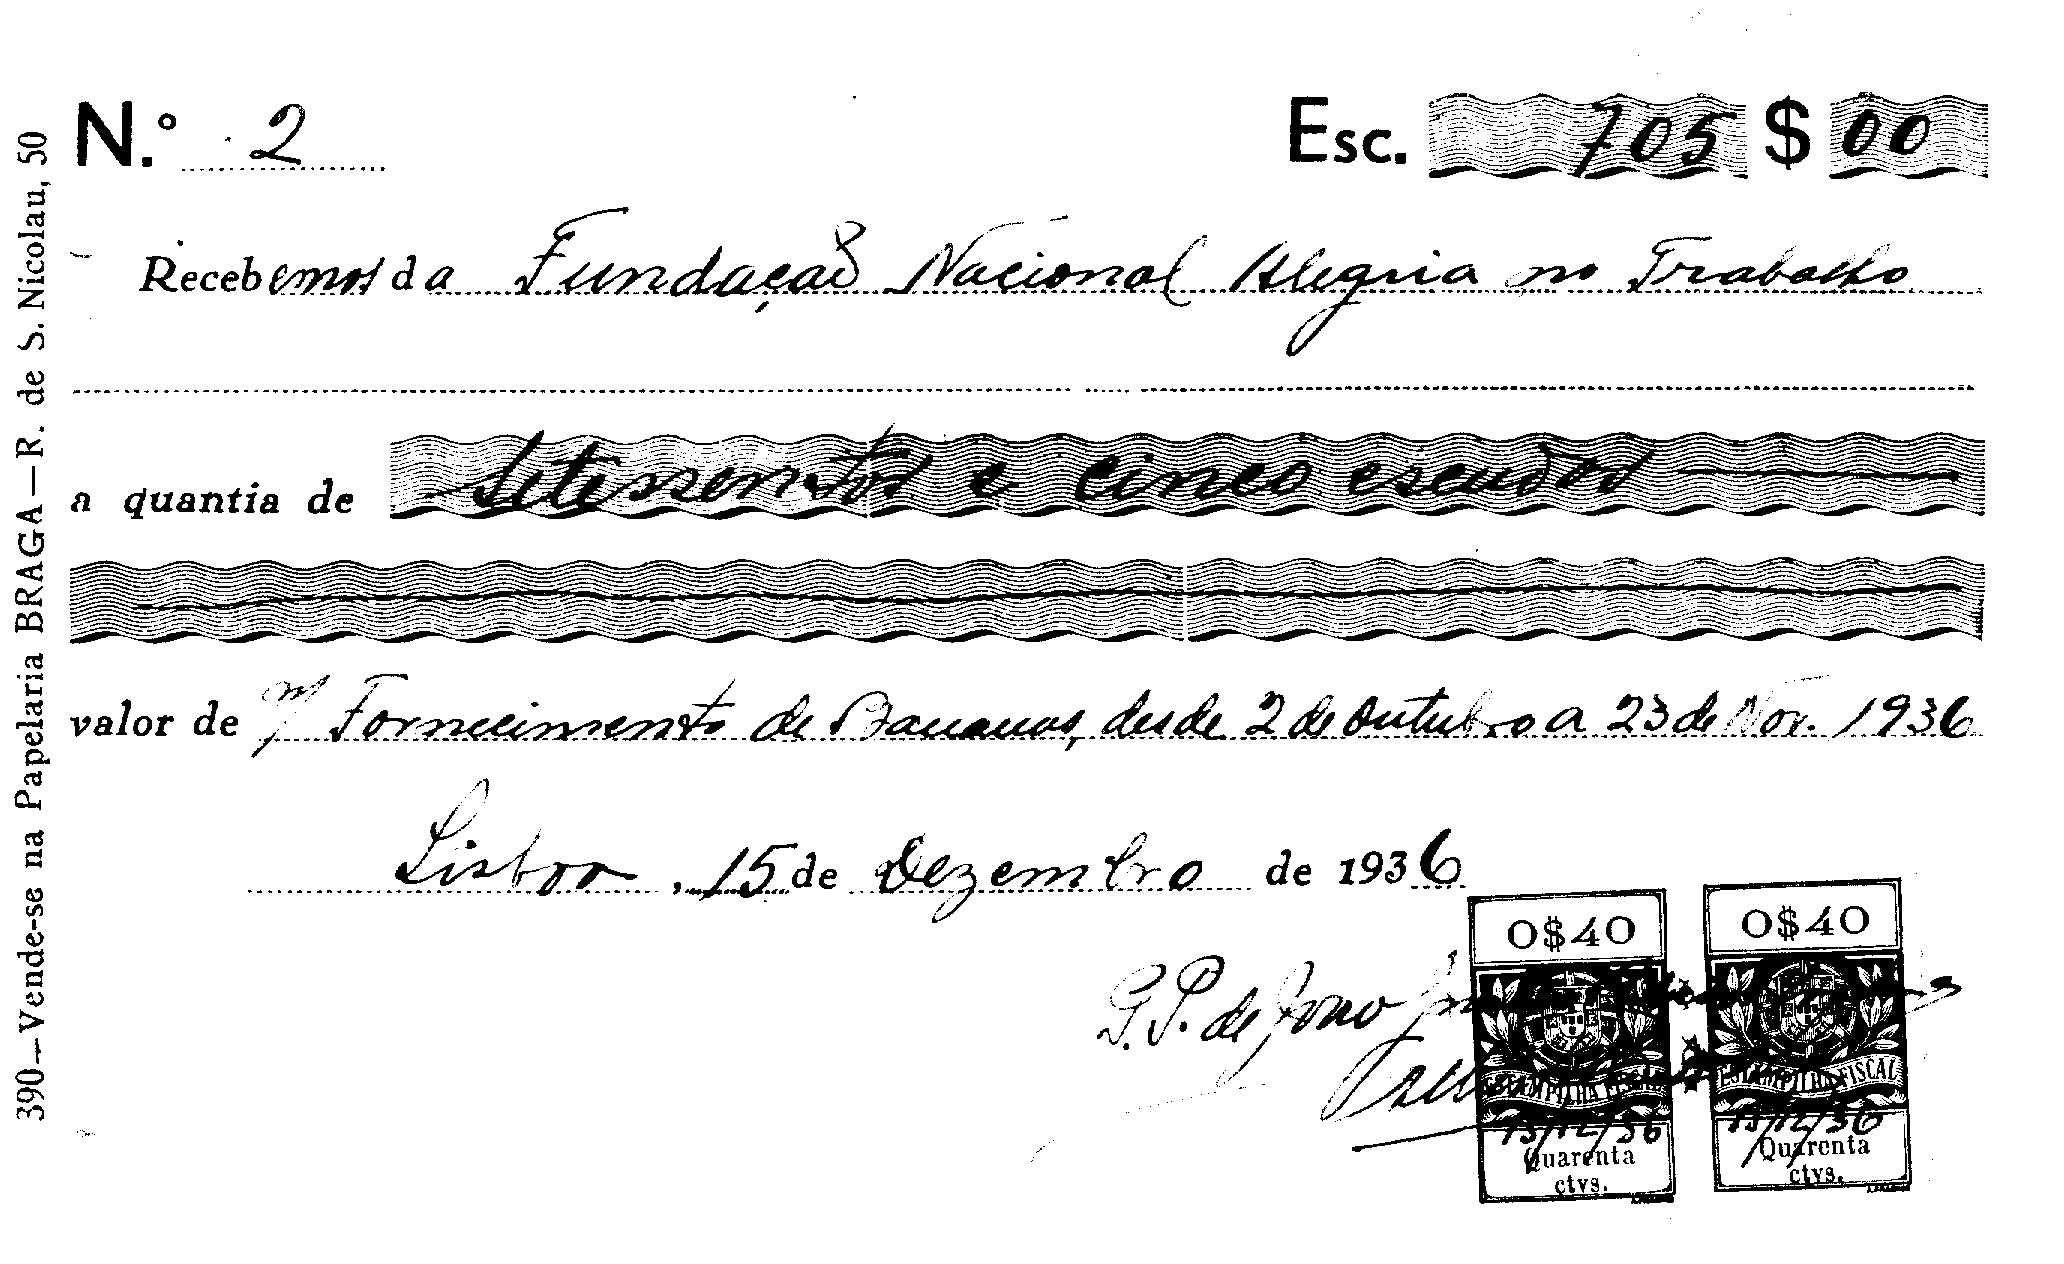 N.º 2 Esc. 705 $ 00
Recebemos da Fundação Nacional Alegria no Trabalho
a quantia de Setessentos e cinco escudos
valor de Fornecimento de Bananas, desde 2 de Outubro a 23 de Nov. 1936
Lisboa, 15 de Dezembro de 1936
G. P. de João
0$40
ESTAMPILHA FISCAL
15/12/36
Quarenta
ctvs.
0$40
ESTAMPILHA FISCAL
15/12/36
Quarenta
ctvs.
390—Vende-se na Papelaria BRAGA—R. de S. Nicolau, 50